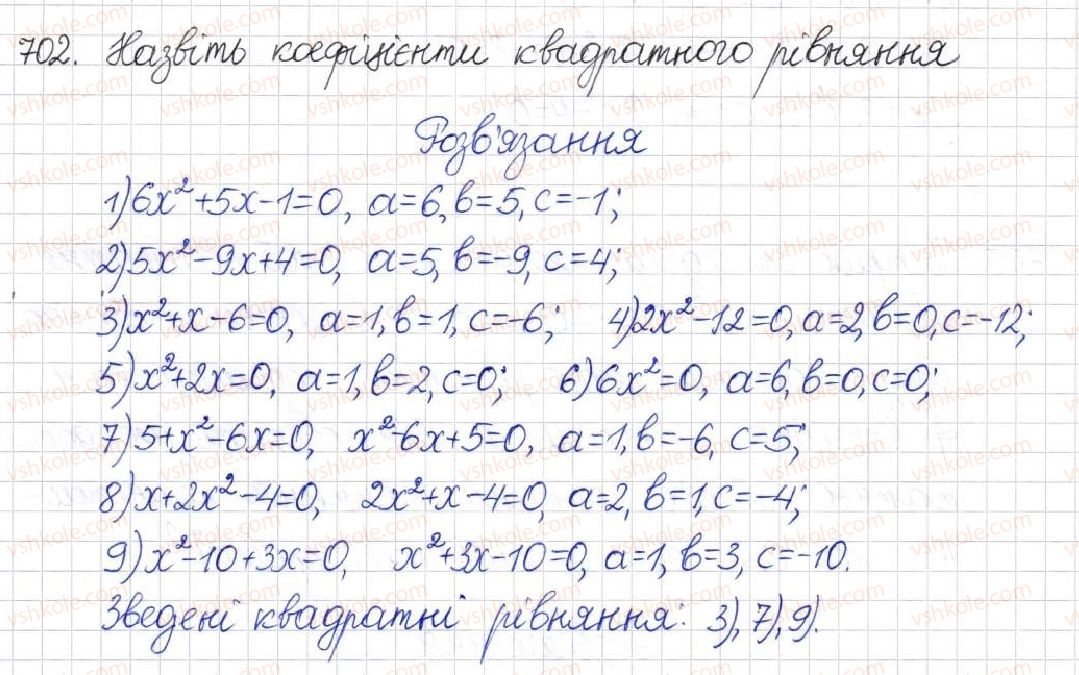 702. Назвіть коефіцієнти квадратного рівняння
Розв'язання
1) 6x²+5x-1=0, a=6, в=5, c=-1;
2) 5x²-9x+4=0, a=5, в=-9, c=4;
3) x²+x-6=0, a=1, в=1, c=-6; 4) 2x²-12=0, a=2, в=0, c=-12;
5) x²+2x=0, a=1, в=2, c=0; 6) 6x²=0, a=6, в=0, c=0;
7) 5+x²-6x=0, x²-6x+5=0, a=1, в=-6, c=5;
8) x+2x²-4=0, 2x²+x-4=0, a=2, в=1, c=-4;
9) x²-10+3x=0, x²+3x-10=0, a=1, в=3, c=-10.
Зведені квадратні рівняння: 3), 7), 9).
vshkole.com